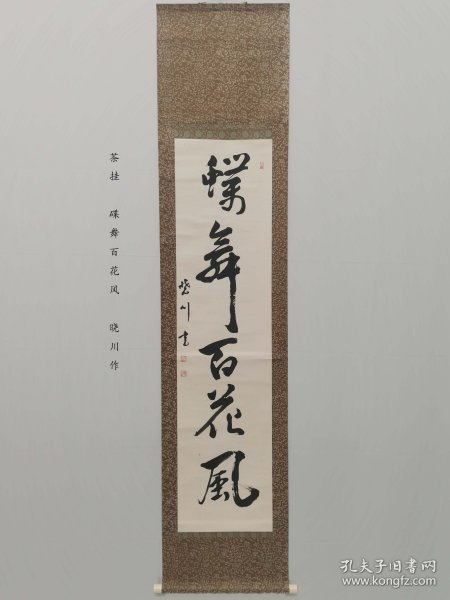 蝶舞百花風
茶挂 碟舞百花风 晓川作
孔夫子旧书网
www.kongfz.com